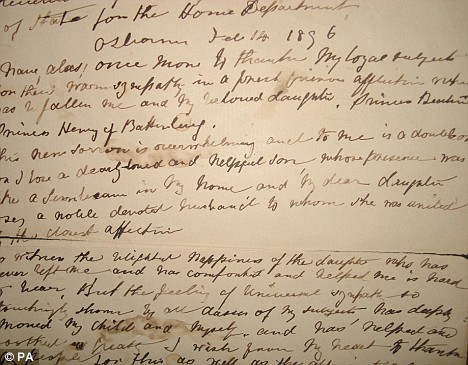 of State for the Home Department
Osborne Feb 14 1896
have, alas! once more to thank My loyal subjects
for their warm sympathy in a fresh grievous affliction
has befallen me and my beloved daughter, Princess
Prince Henry of Battenberg.
This new sorrow is overwhelming and to me is a double
I lose a dearly loved and helpful son whose presence was
like a sunbeam in My Home and My dear daughter
loses a noble devoted Husband to whom she was united
by the closest affection
witness the blighted happiness of the daughter who has
never left me and has comforted and helped me is hard
to bear. But the feeling of Universal sympathy so
touchingly shown by all classes of My subjects has deeply
moved My Child and Myself, and has helped and
I wish from My heart to thank
people for this as well as
©PA